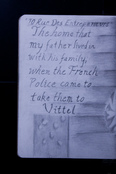 10 Rue Des Entrepreneurs
The home that
my father lived in
with his family,
when the French
Police came to
take them to
Vittel